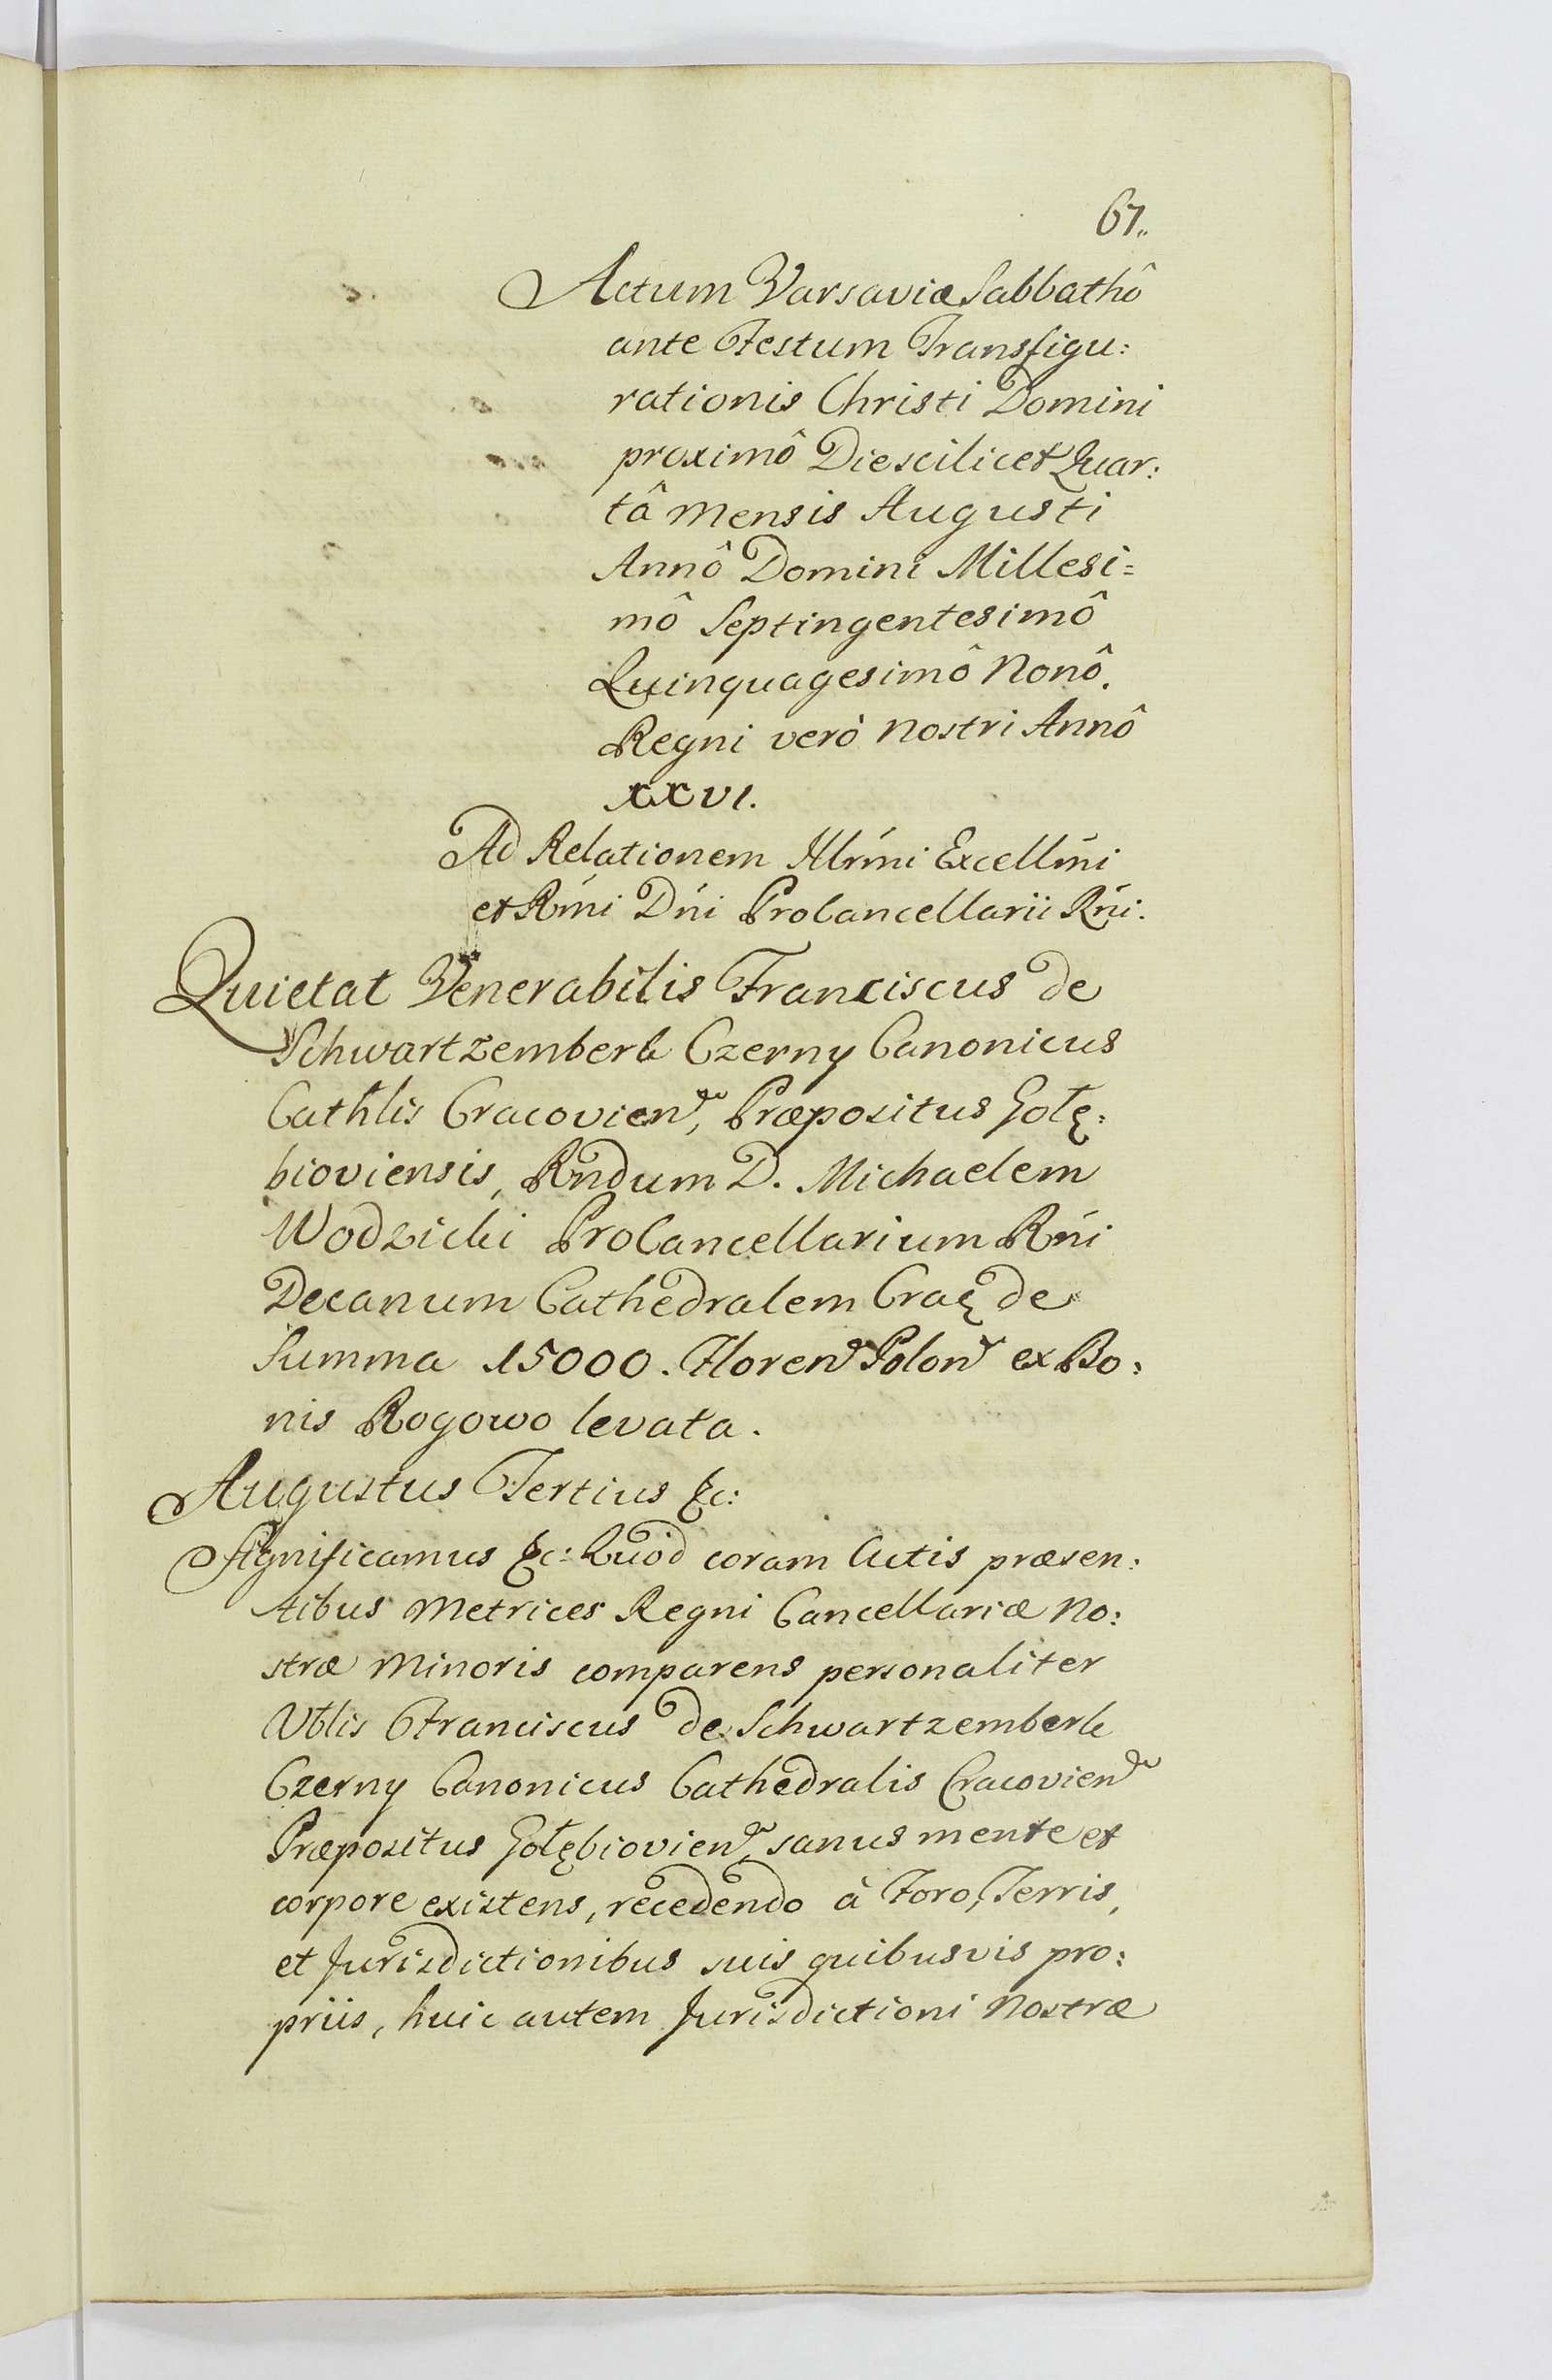 67.
Actum Varsaviæ Sabbathô
ante Festum Transfigu:
rationis Christi Domini
proximô Die scilicet Quar:
tâ Mensis Augusti
Annô Domini Millesi=
mô Septingentesimô
Quinquagesimô Nonô.
Regni verò Nostri Annô
XXVI.
Ad Relationem Illrmi Excellmi
et Rmi Dni ProCancellarii Rni.
Quietat Venerabilis Franciscus de
Schwartzemberk Czerny Canonicus
Cathlis Cracovien, Præpositus Gołę:
bioviensis, Rndum D. Michaelem
Wodzicki ProCancellarium Rni
Decanum Cathedralem Crac de
Summa 15000. Floren Polon ex Bo:
nis Rogowo levata.
Augustus Tertius &c:
Significamus &c: Quod coram Actis præsen:
tibus Metrices Regni Cancellariæ No:
stræ Minoris comparens personaliter
Vblis Franciscus de Schwartzemberk
Czerny Canonicus Cathedralis Cracovien
Præpositus Gołębiovien, sanus mente et
corpore existens, recedendo à Foro, Terris,
et Jurisdictionibus suis quibusvis pro:
priis, huic autem Jurisdictioni Nostræ